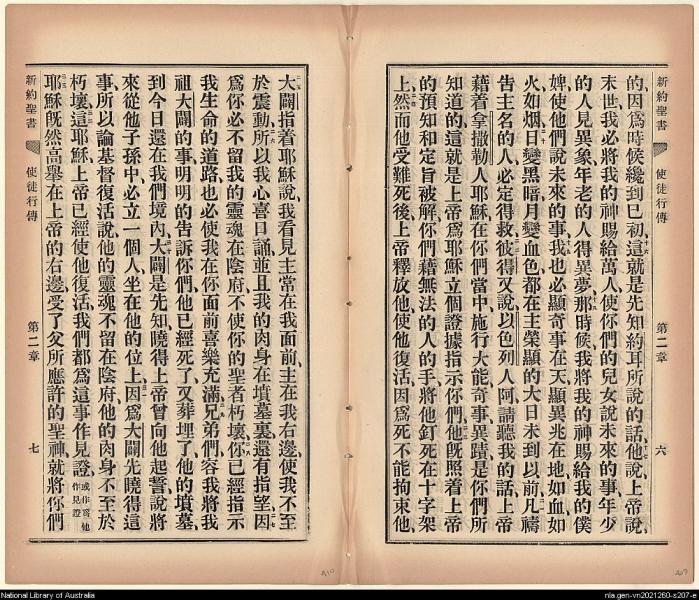 新約聖書 使徒行傳 第二章 六
的、因爲時候纔到巳初、十六這就是先知約耳所說的話、十七他說上帝說、
末世、我必將我的神賜給萬人、使你們的兒女說未來的事、年少
的人見異象、年老的人得異夢、十八那時候、我將我的神賜給我的僕
婢、使他們說未來的事、十九我也必顯奇事在天、顯異兆在地、如血如
火如烟、二十日變黑暗、月變血色、都在主榮顯的大日未到以前、凡禱
告主名的人、必定得救、彼得又說、以色列人阿、請聽我的話、上帝
藉着拿撒勒人耶穌、在你們當中施行大能奇事異蹟、是你們所
知道的、這就是上帝爲耶穌立個證據、指示你們、他既照着上帝
的預知和定旨、被解你們藉無法的人的手、將他釘死在十字架
上、然而他受難死後、上帝釋放他、使他復活、因爲死不能拘束他、
大闢指着耶穌說、我看見主常在我面前、主在我右邊、使我不至
於震動、二六所以我心喜口誦、並且我的肉身在墳墓裏還有指望、二七因
爲你必不留我的靈魂在陰府、不使你的聖者朽壞、二八你已經指示
我生命的道路、也必使我在你面前喜樂充滿、兄弟們、容我將我
祖大闢的事、明明的告訴你們、他已經死了、又葬埋了、他的墳墓、
到今日還在我們境內、大闢是先知、曉得上帝曾向他起誓、說將
來從他子孫中、必立一個人坐在他的位上、因爲大闢先曉得這
事、所以論基督復活說、他的靈魂不留在陰府、他的肉身不至於
朽壞、這耶穌上帝已經使他復活、我們都爲這事作見證、或作爲他作見證
耶穌既然高舉在上帝的右邊、受了父所應許的聖神、就將你們
新約聖書 使徒行傳 第二章 七
National Library of Australia
nla.gen-vn2021260-s207-e